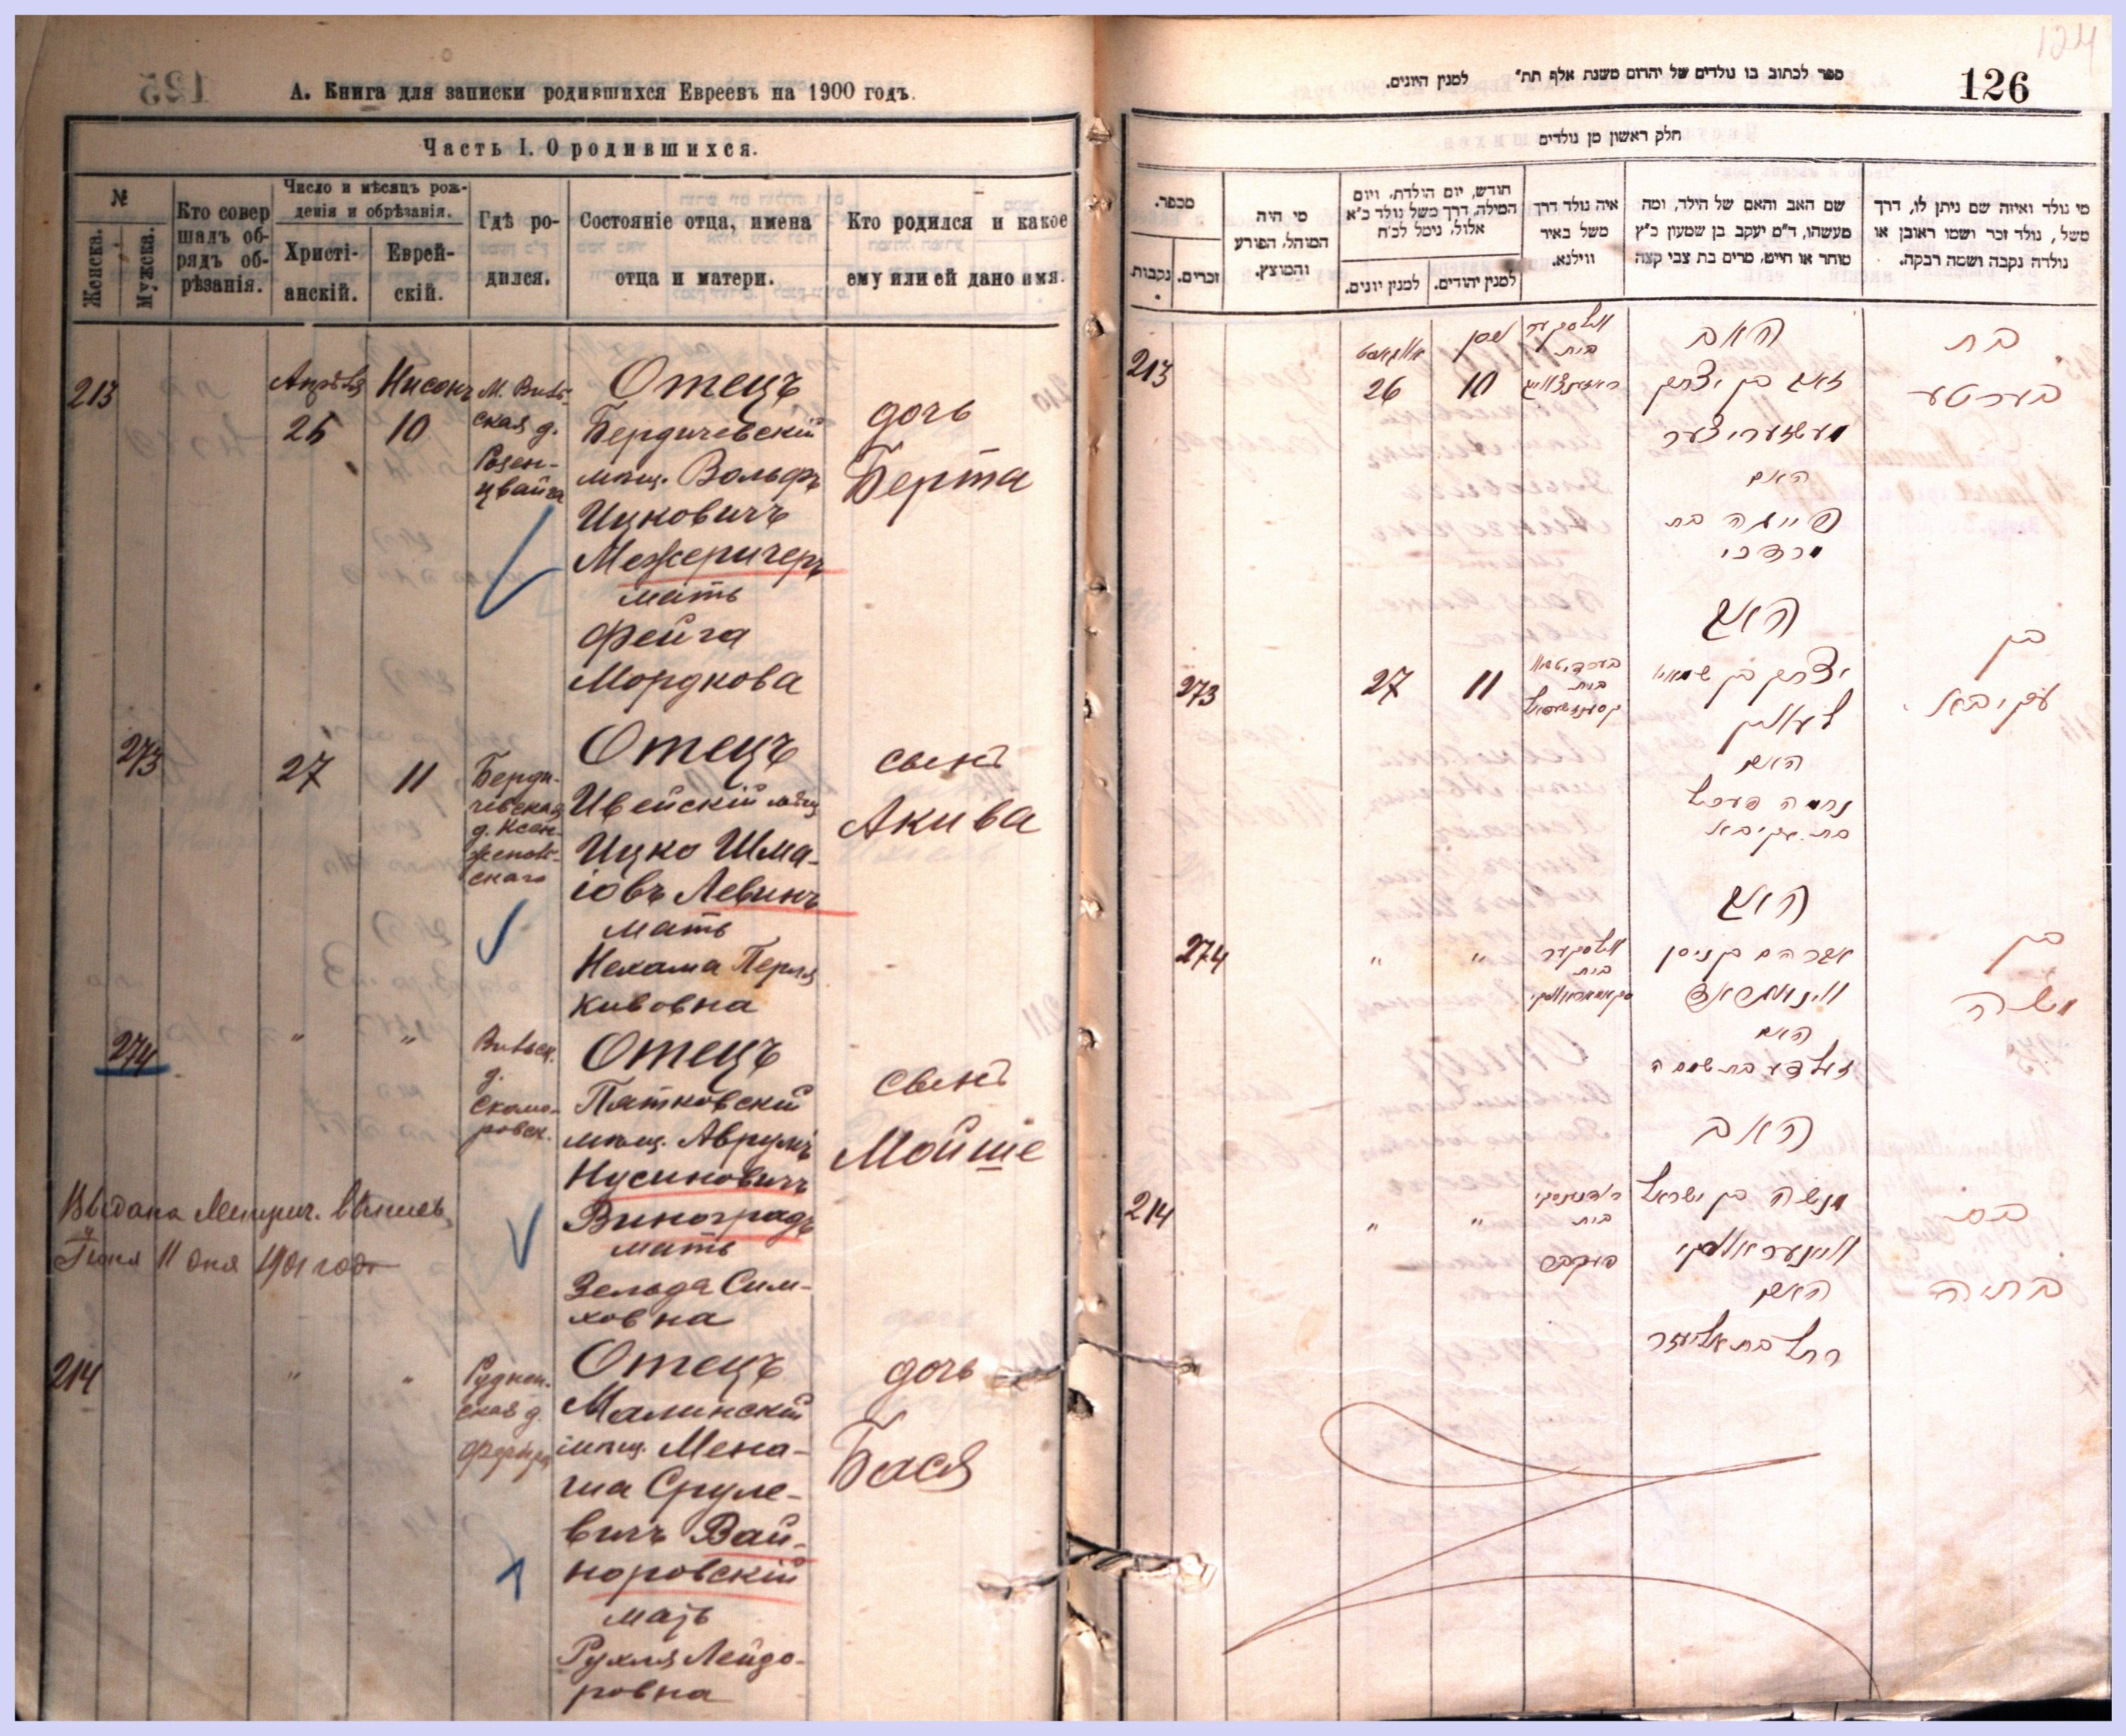 А. Книга для записки родившихся Евреевъ на 1900 годъ.
Часть I. О родившихся.
№
Женска.
Мужска.
Кто совер
шалъ об-
рядъ об-
рѣзанія.
Число и мѣсяцъ рож-
денія и обрѣзанія.
Христі-
анскій.
Еврей-
скій.
Гдѣ ро-
дился.
Состояніе отца, имена
отца и матери.
Кто родился и какое
ему или ей дано имя.
213
Апрѣля
25
Нисонъ
10
ская д.
Розен-
цвайга
Отецъ
Бердичевскій
мѣщ. Вольфъ
Ицковичъ
Межеричеръ
мать
Фейга
Мордкова
дочь
Берта
273
27
11
Берди-
чевская
д. Ксен-
женов-
скаго
Отецъ
Ицко Шма-
іовъ Левинъ
мать
Нехама Перля
Кивовна
сынъ
Акива
274
"
"
д.
Скомо-
ровск.
Отецъ
Пятковскій
мѣщ. Аврумъ
Нусиновичъ
Виноградъ
мать
Зельда Сим-
ховна
сынъ
Мойше
Выдана Метрич. выпись
Іюня 11 дня 1901 года
214
"
"
ская д.
Отецъ
Малинскій
мѣщ. Мена-
ша Сруле-
вичъ Вай-
норовскій
мать
Рухля Лейзо-
ровна
дочь
Бася
126
124
ספר לכתוב בו נולדים של יהרום משנת אלף תת״ למנין היונים.
חלק ראשון מן נולדים
מספר.
נקבות
זכרים.
מי היה
המוהל, הפורע
והמוצץ.
חודש, יום הולדת, ויום
המילה, דרך משל נולד כ״א
אלול, נימל לכ״ח
למנין יונים.
למנין יהודים.
איה נולד דרך
משל באיר
ווילנא.
שם האב והאם של הילד, ומה
מעשהו, ד״מ יעקב בן שמעון כ״ץ
סוחר או חייט, מרים בת צבי קצה
מי נולד ואיזה שם ניתן לו, דרך
משל, נולד זכר ושמו ראובן או
נולדה נקבה ושמה רבקה.
213
26
10
בית
האב
זאב בן יצחק
מעשזעריצער
האם
פייגה בת
מרדכי
בת
בערטע
273
27
11
בית
האב
יצחק בן שמאי
לעווין
האם
נחמה פערל
בת עקיבא
בן
עקיבא
274
"
"
בית
האב
אברהם בן ניסן
האם
זעלדע בת שמחה
בן
משה
214
"
"
בית
האב
מנשה בן ישראל
האם
רחל בת אליעזר
בת
בתיה